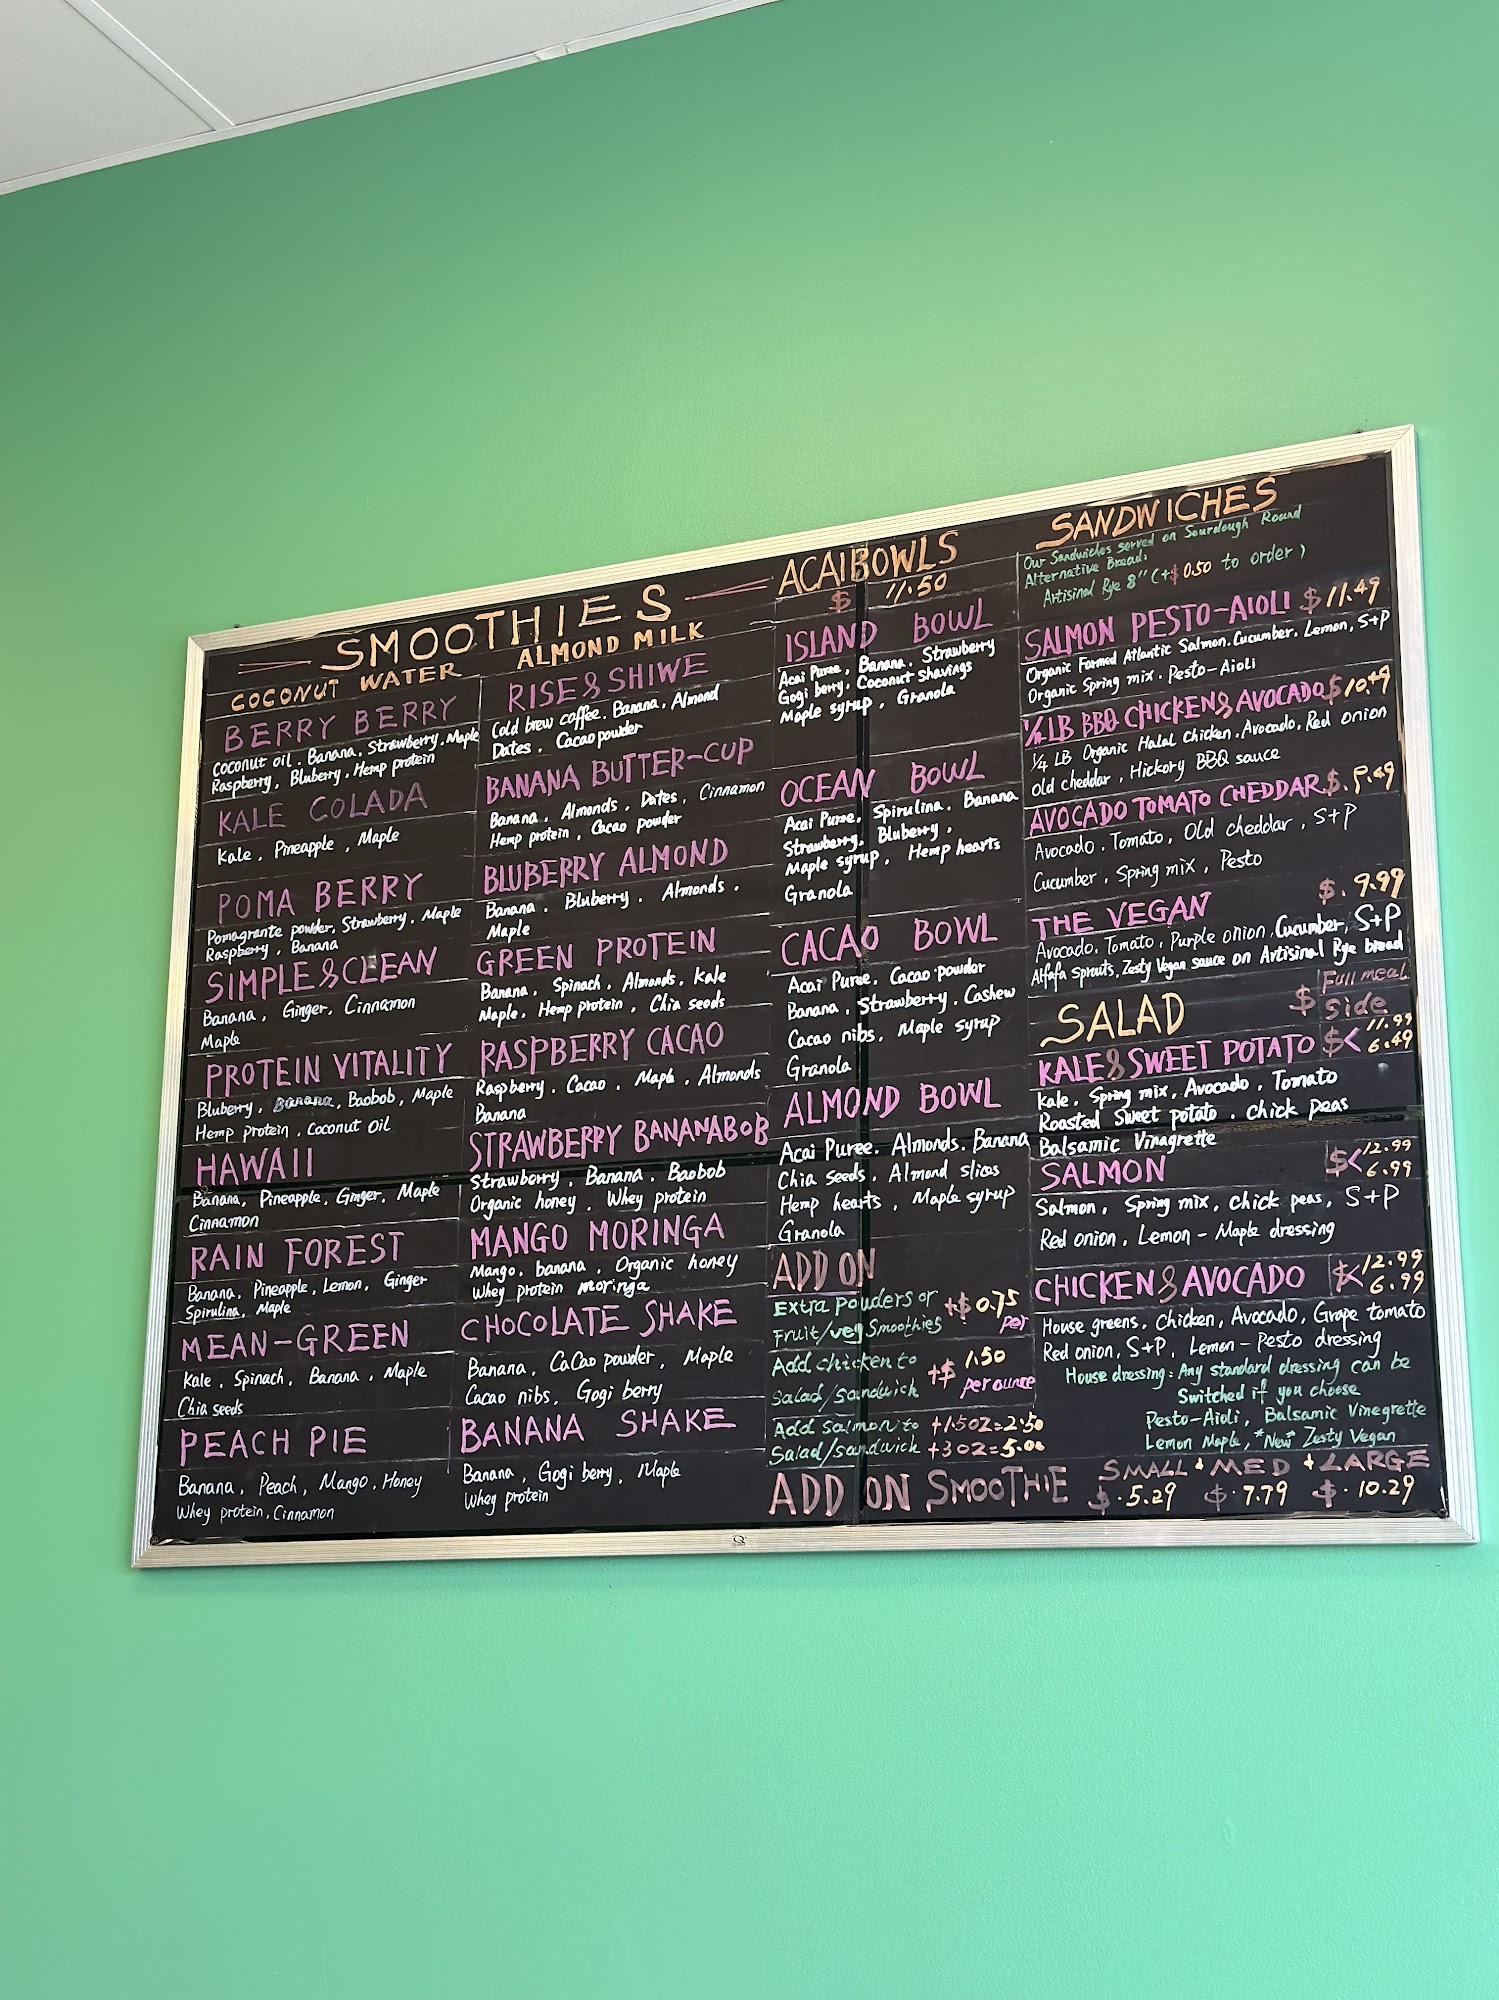 SMOOTHIES
COCONUT WATER
BERRY BERRY
Coconut oil. Banana. Strawberry. Maple
Raspberry, Bluberry. Hemp protein
KALE COLADA
Kale, Pineapple, Maple
POMA BERRY
Pomagrante powder, Strawberry. Maple
Raspberry, Banana
SIMPLE & CLEAN
Banana, Ginger, Cinnamon
Maple
PROTEIN VITALITY
Bluberry, Banana, Baobob, Maple
Hemp protein, Coconut Oil
HAWAII
Banana, Pineapple, Ginger, Maple
Cinnamon
RAIN FOREST
Banana, Pineapple, Lemon, Ginger
Spirulina, Maple
MEAN-GREEN
Kale, Spinach, Banana, Maple
Chia seeds
PEACH PIE
Banana, Peach, Mango, Honey
Whey protein, Cinnamon
ALMOND MILK
RISE & SHIWE
Cold brew coffee. Banana, Almond
Dates, Cacao powder
BANANA BUTTER-CUP
Banana, Almonds, Dates, Cinnamon
Hemp protein, Cacao powder
BLUBERRY ALMOND
Banana, Bluberry, Almonds,
Maple
GREEN PROTEIN
Banana, Spinach, Almonds, Kale
Maple, Hemp protein, Chia seeds
RASPBERRY CACAO
Raspberry, Cacao, Maple, Almonds
Banana
STRAWBERRY BANANABOB
Strawberry, Banana, Baobob
Organic honey, Whey protein
MANGO MORINGA
Mango, banana, Organic honey
Whey protein moringa
CHOCOLATE SHAKE
Banana, CaCao powder, Maple
Cacao nibs, Gogi berry
BANANA SHAKE
Banana, Gogi berry, Maple
Whey protein
ACAIBOWLS
$ 11.50
ISLAND BOWL
Acai Puree, Banana. Strawberry
Gogi berry. Coconut shavings
Maple syrup, Granola
OCEAN BOWL
Acai Puree, Spirulina, Banana
Strawberry, Bluberry,
Maple syrup, Hemp hearts
Granola
CACAO BOWL
Acai Puree. Cacao powder
Banana, Strawberry. Cashew
Cacao nibs, Maple syrup
Granola
ALMOND BOWL
Acai Puree. Almonds. Banana
Chia seeds. Almond slices
Hemp hearts, Maple syrup
Granola
ADD ON
Extra powders or +$ 0.75
Fruit/veg Smoothies per
Add chicken to +$ 1.50
Salad/sandwich per ounce
Add Salmon to +1.5OZ=2.50
Salad/sandwich +3OZ=5.00
SANDWICHES
Our Sandwiches served on Sourdough Round
Alternative Bread:
Artisinal Rye 8" (+$0.50 to order)
SALMON PESTO-AIOLI $11.49
Organic Formed Atlantic Salmon. Cucumber. Lemon, S+P
Organic Spring mix. Pesto-Aioli
1/4 LB BBQ CHICKEN & AVOCADO $10.49
1/4 LB Organic Halal chicken. Avocado, Red onion
Old cheddar, Hickory BBQ sauce
AVOCADO TOMATO CHEDDAR $.9.49
Avocado. Tomato, Old cheddar, S+P
Cucumber, Spring mix, Pesto
THE VEGAN $.9.99
Avocado, Tomato, Purple onion, Cucumber, S+P
Alfafa sprouts, Zesty Vegan sauce on Artisinal Rye bread
SALAD $ Full meal
Side
KALE & SWEET POTATO $< 11.99
6.49
Kale, Spring mix, Avocado, Tomato
Roasted Sweet potato, chick peas
Balsamic Vinagrette
SALMON $< 12.99
6.99
Salmon, Spring mix, chick peas, S+P
Red onion, Lemon-Maple dressing
CHICKEN & AVOCADO $< 12.99
6.99
House greens, Chicken, Avocado, Grape tomato
Red onion, S+P, Lemon-Pesto dressing
House dressing: Any standard dressing can be
Switched if you choose
Pesto-Aioli, Balsamic Vinegrette
Lemon Maple, *New* Zesty Vegan
ADD ON SMOOTHIE
SMALL + MED + LARGE
$.5.29 $.7.79 $.10.29